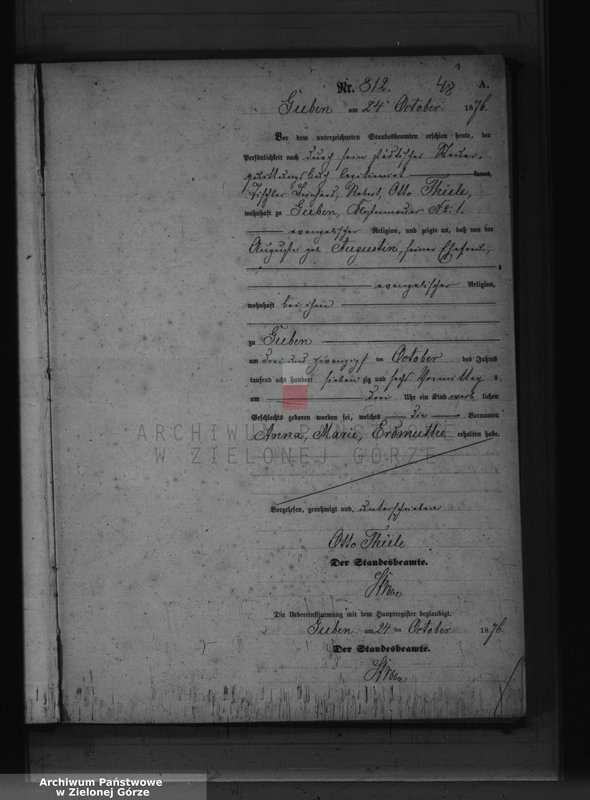 Nr. 812. 48 A.
Guben am 24 October 1876.
Vor dem unterzeichneten Standesbeamten erschien heute, der
Persönlichkeit nach durch sein städtisches Steuer-
quittungsbuch legitimirt kannt,
Tischler Robert, Otto Thiele,
wohnhaft zu Guben, No: 1.
evangelischer Religion, und zeigte an, daß von der
Auguste geb. Augustin, seiner Ehefrau,
evangelischer Religion,
wohnhaft bei ihm
zu Guben
am drei und zwanzigsten October des Jahres
tausend acht hundert siebenzig und sechs Vormittag s
um drei Uhr ein Kind weiblichen
Geschlechts geboren worden sei, welches die Vornamen
Anna, Marie, Erdmuthe erhalten habe.
ARCHIWUM PAŃSTWOWE
W ZIELONEJ GÓRZE
Vorgelesen, genehmigt und unterschrieben
Otto Thiele
Der Standesbeamte.
Die Uebereinstimmung mit dem Hauptregister beglaubigt.
Guben am 24 ten October 1876.
Der Standesbeamte.
Archiwum Państwowe
w Zielonej Górze